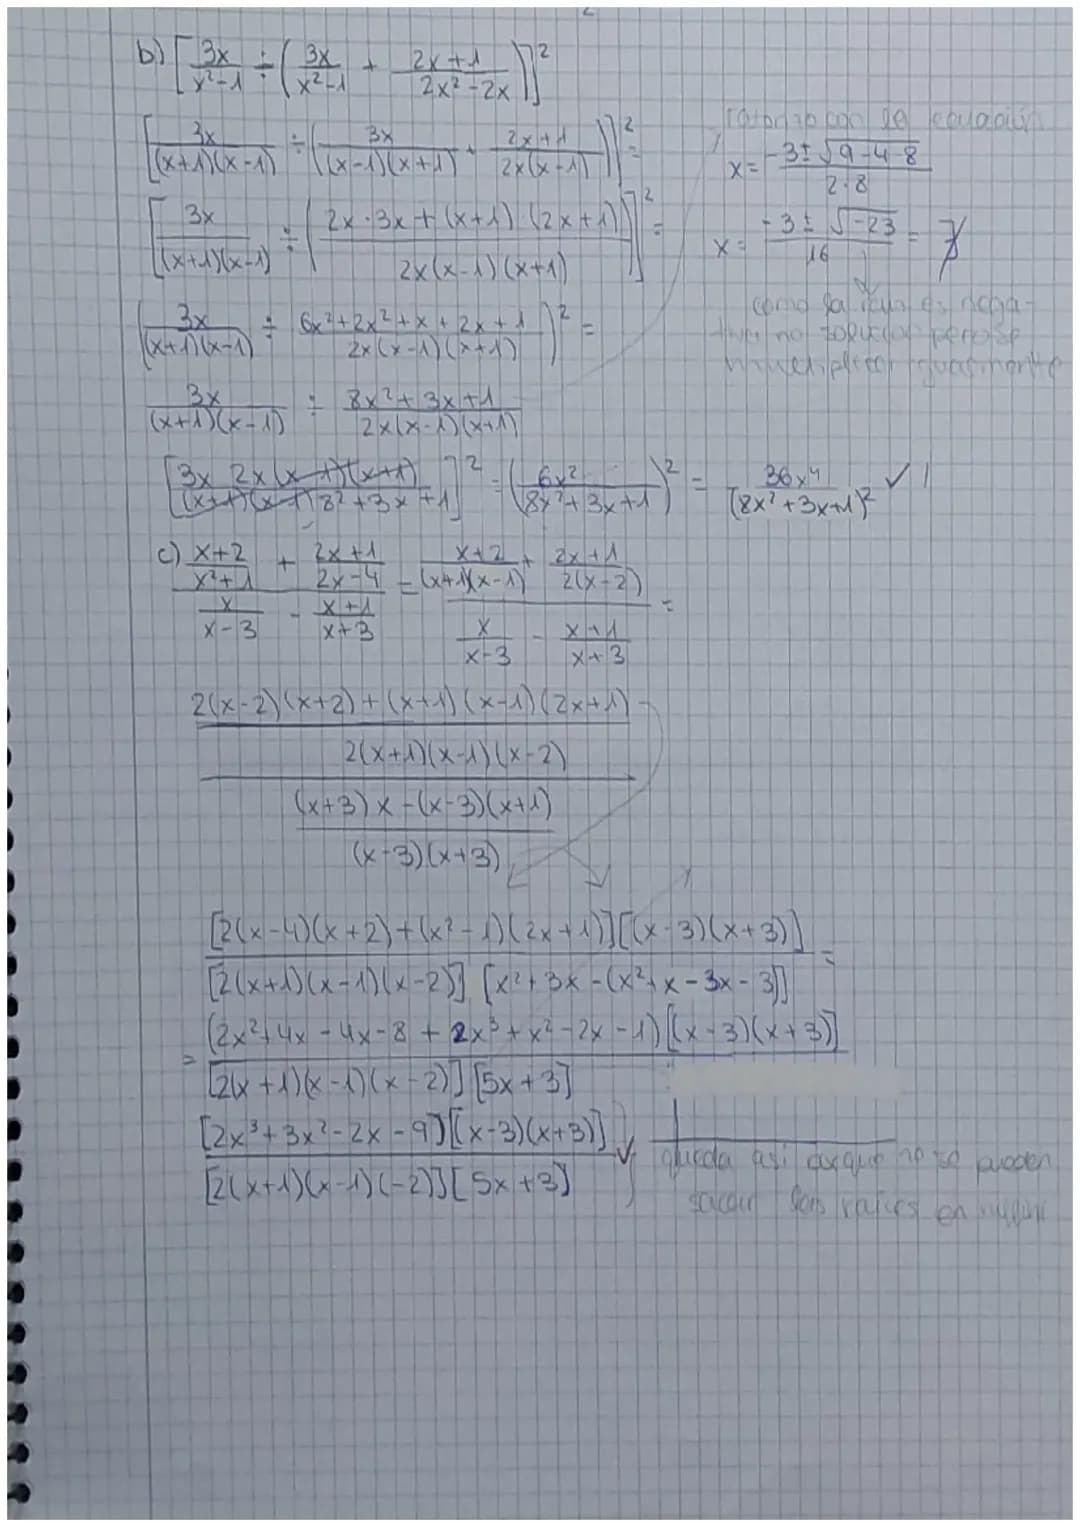 b) [3x/(x²-1) ÷ (3x/(x²-1) + (2x+1)/(2x²-2x))]²
[3x/((x+1)(x-1)) ÷ (3x/((x-1)(x+1)) + (2x+1)/(2x(x-1)))]² =
[3x/((x+1)(x-1)) ÷ ((2x·3x+(x+1)(2x+1))/(2x(x-1)(x+1)))]² =
(3x/((x+1)(x-1)) ÷ (6x²+2x²+x+2x+1)/(2x(x-1)(x+1)))² =
3x/((x+1)(x-1)) ÷ (8x²+3x+1)/(2x(x-1)(x+1))
[3x 2x(x-1)(x+1)/((x+1)(x-1)8²+3x+1)]² = (6x²/(8x²+3x+1))² = 36x⁴/(8x²+3x+1)² ✓
con la ecuación
x = (-3±√(9-4·8))/(2·8)
x = (-3±√(-23))/16 =
como la raiz es nega-
tiva no solucion pero se
c) ((x+2)/(x²+1) + (2x+1)/(2x-4))/(x/(x-3) - (x+1)/(x+3)) = ((x+2)/((x+1)(x-1)) + (2x+1)/(2(x-2)))/(x/(x-3) - (x+1)/(x+3)) =
2(x-2)(x+2)+(x+1)(x-1)(2x+1)
2(x+1)(x-1)(x-2)
(x+3)x-(x-3)(x+1)
(x-3)(x+3)
[2(x-4)(x+2)+(x²-1)(2x+1)][(x-3)(x+3)]
[2(x+1)(x-1)(x-2)] [x²+3x-(x²+x-3x-3)] =
= (2x²+4x-4x-8+2x³+x²-2x-1)[(x-3)(x+3)]
[2(x+1)(x-1)(x-2)][5x+3]
[2x³+3x²-2x-9][(x-3)(x+3)]
[2(x+1)(x-1)(-2)][5x+3] ✓
queda asi porque no se pueden
sacar las raices en